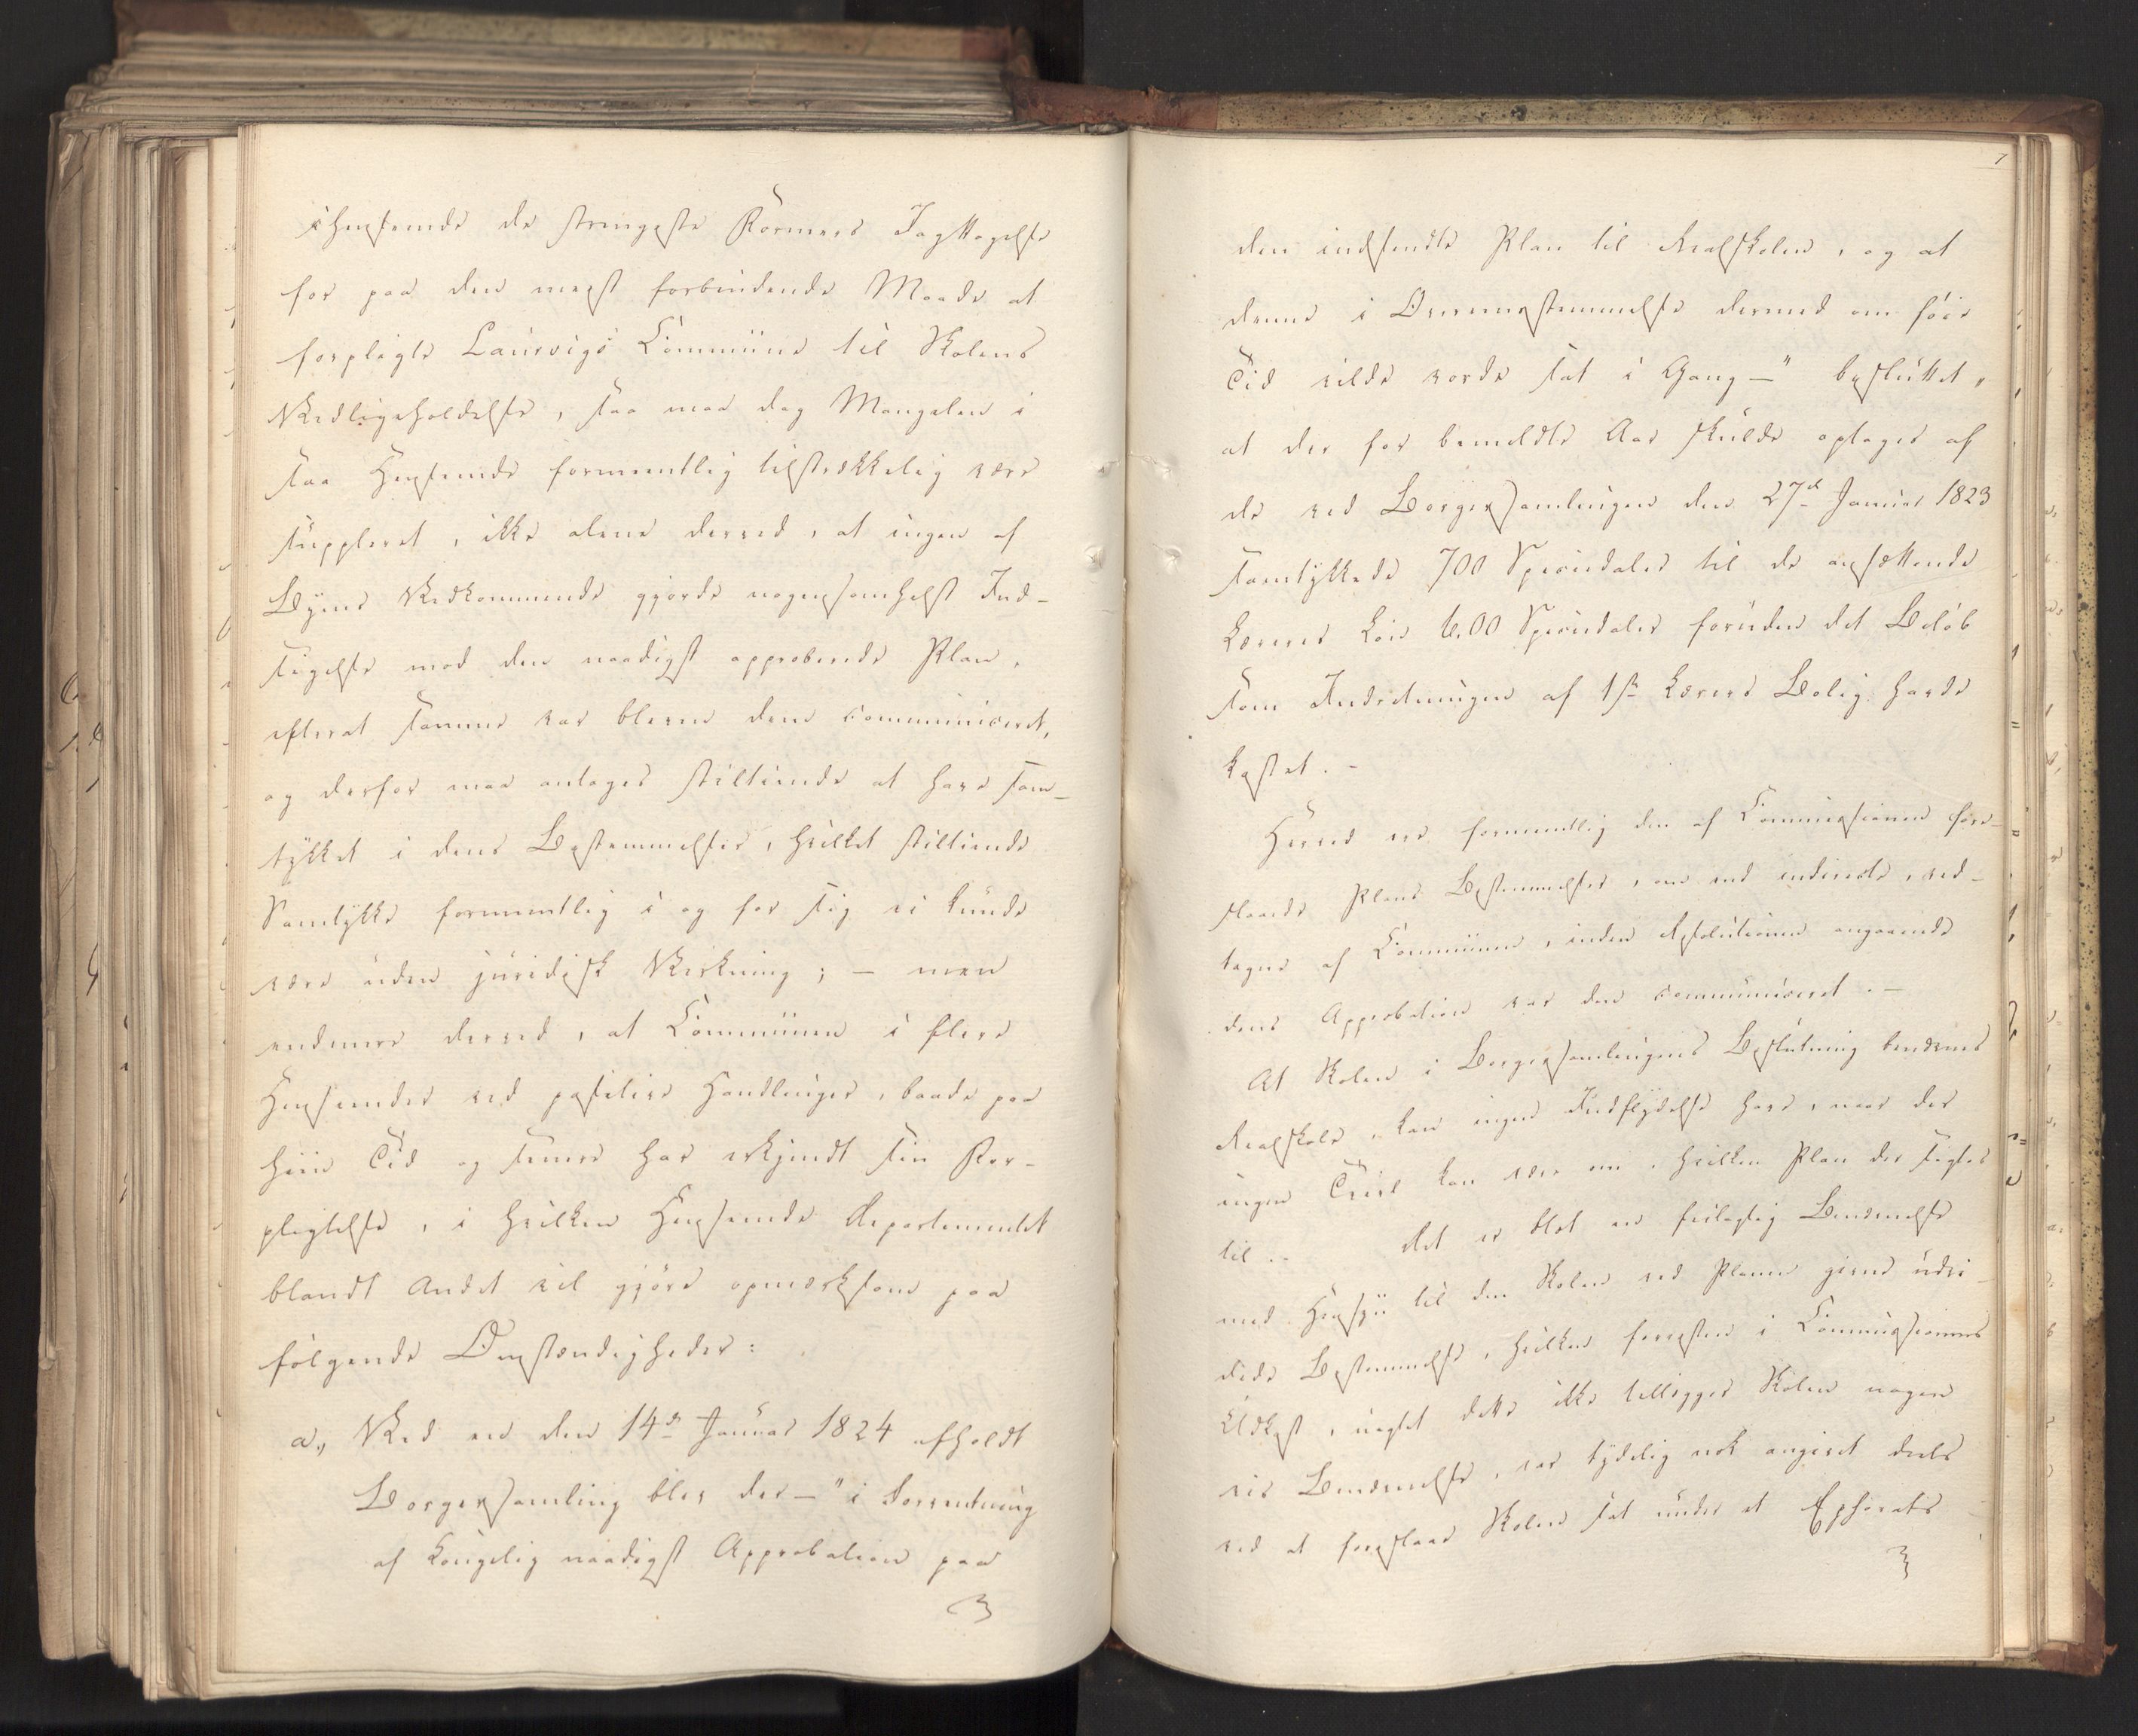 i Henseende de strengeste Formers Iagttagelse
for paa den meest forbindende Maade at
forpligte Laurvigs Commune til Skolens
Vedligeholdelse, saa maa dog Mangelen i
saa Henseende formeentlig tilstrækkelig være
suppleret, ikke alene derved, at ingen af
Byens Vedkommende gjorde nogensomhelst Ind-
sigelse mod den naadigst approberede Plan,
efterat samme var bleven dem communiceret,
og derfor maa antages stiltiende at have sam-
tykket i dens Bestemmelser, hvilket stiltiende
Samtykke formeentlig i og for sig ei kunde
være uden juridisk Virkning; – men
endmere derved, at Communen i flere
Henseender ved positive Handlinger, baade paa
hiin Tid og senere har erkjendt sin For-
pligtelse, i hvilken Henseende Departementet
blandt Andet vil gjøre opmærksom paa
følgende Omstændigheder:
a., Ved en den 14de Januar 1824 afholdt
Borgersamling blev der – "i Forventning
af Kongelig naadigst Approbation paa
7
den indsendte Plan til Realskolen, og at
denne i Overeensstemmelse dermed om føie
Tid vilde vorde sat i Gang –" besluttet,
at der for bemeldte Aar skulde optages af
de ved Borgersamlingen den 27de Januar 1823
samtykkede 700 Speciedaler til de ansættende
Læreres Løn 600 Speciedaler foruden det Beløb
som Indretningen af 1ste Lærers Bolig havde
kostet. –
Herved ere formeentlig den af Commissionen fore-
slaaede Plans Bestemmelser, om end indirecte, ved-
tagne af Communen, inden Resolutionen angaaende
dens Approbation var den communiceret. –
At Skolen i Borgersamlingens Beslutning benævnes
Realskole, kan ingen Indflydelse have, naar der
ingen Tvivl kan være om, hvilken Plan der sigtes
til. – Det er blot en feilagtig Benævnelse
med Hensyn til den Skolen ved Planen givne udvi-
dede Bestemmelse, hvilken forresten i Commissionens
Udkast, uagtet dette ikke tillægger Skolen nogen
vis Benævnelse, var tydelig nok angivet deels
ved at foreslaae Skolen sat under et Ephorats